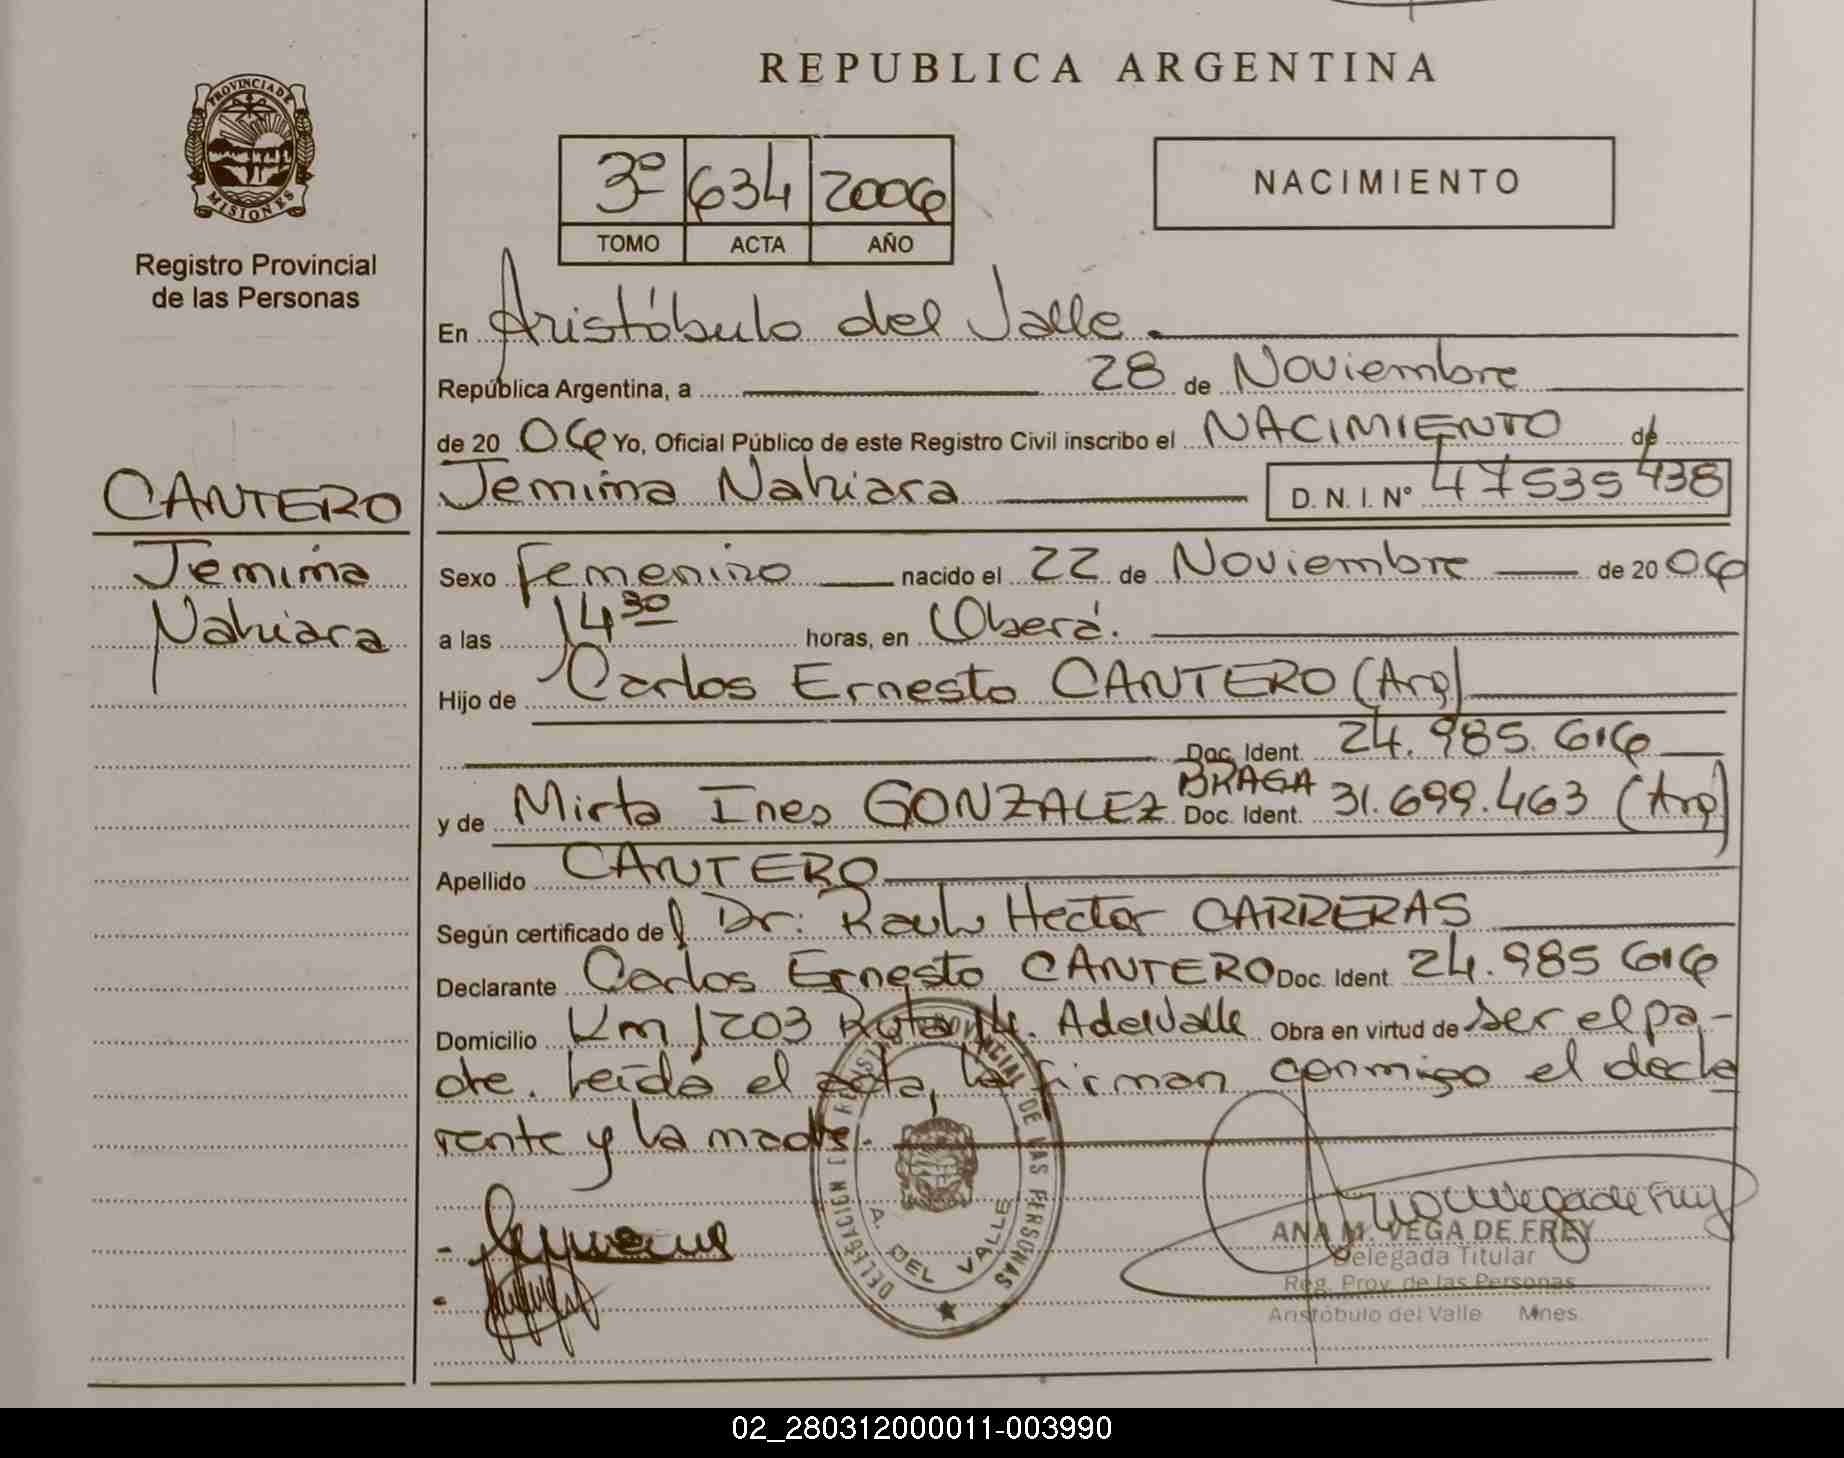 PROVINCIA DE
MISIONES
Registro Provincial
de las Personas
CANTERO
Jemima
Nahiara
REPUBLICA ARGENTINA
3º 634 2006
TOMO ACTA AÑO
NACIMIENTO
En Aristóbulo del Valle.
República Argentina, a 28 de Noviembre
de 20 06 Yo, Oficial Público de este Registro Civil inscribo el NACIMIENTO de
Jemima Nahiara D. N. I. Nº 47535438
Sexo Femenino nacido el 22 de Noviembre de 20 06
a las 14 30 horas, en Oberá.
Hijo de Carlos Ernesto CANTERO (Arg)
Doc. Ident. 24.985.616
y de Mirta Ines GONZALEZ BRAGA Doc. Ident. 31.699.463 (Arg)
Apellido CANTERO
Según certificado del Dr: Raul Hector CARRERAS
Declarante Carlos Ernesto CANTERO Doc. Ident. 24.985 616
Domicilio Km 1203 Ruta 14. A del Valle Obra en virtud de ser el pa-
dre. Leída el acta, la firman conmigo el decla
rante y la madre.
DELEGACION REGISTRO PROVINCIAL DE LAS PERSONAS
A. DEL VALLE
ANA M. VEGA DE FREY
Delegada Titular
Reg. Prov. de las Personas
Aristóbulo del Valle Mnes.
02_280312000011-003990